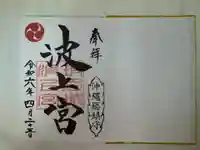 奉拝
沖縄総鎮守
波上宮
令和六年四月